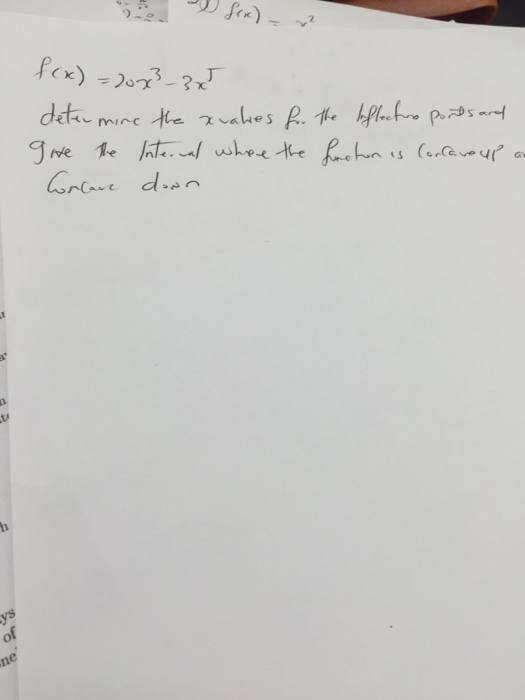 f(x) = x²
f(x) = 20x³ - 3x⁵
determine the x values for the Inflection points and
give the Interval where the function is Concave up
Concave down
h
ys
of
ne